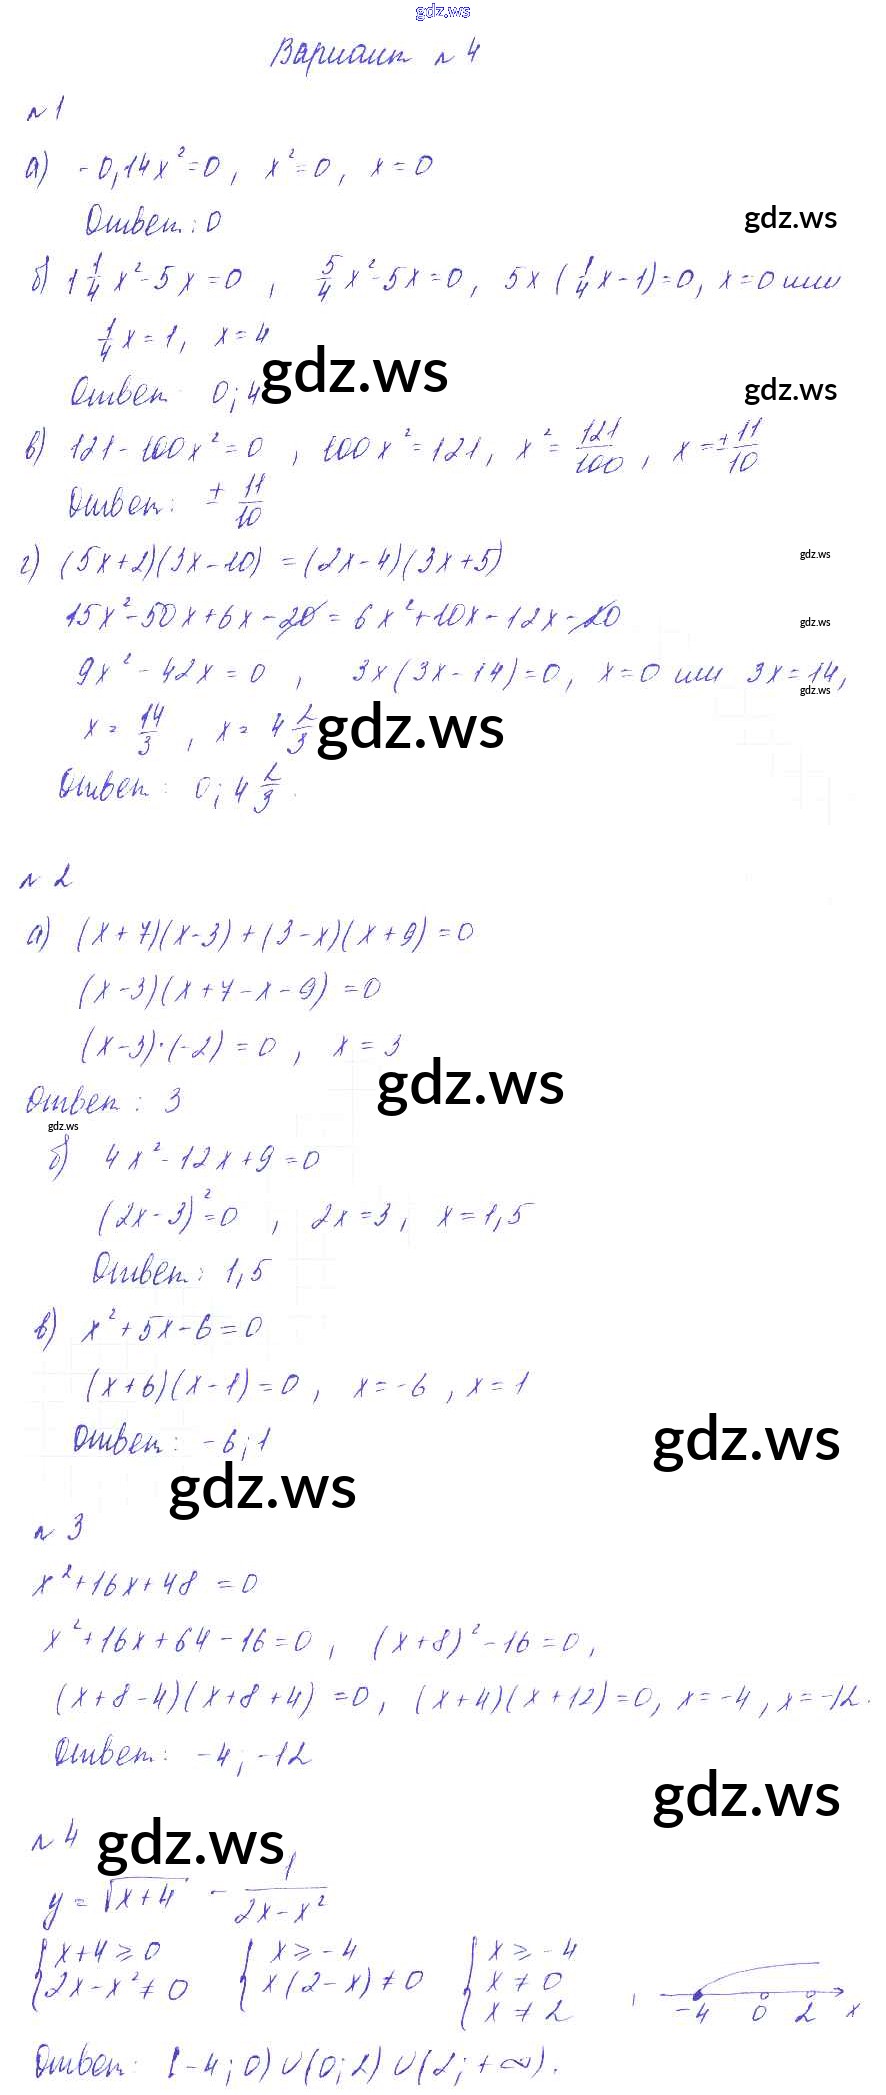 gdz.ws
Вариант №4
№1
а) -0,14x²=0, x²=0, x=0
Ответ: 0
gdz.ws
б) 1 1/4 x²-5x=0, 5/4 x²-5x=0, 5x(1/4 x-1)=0, x=0 или
1/4 x=1, x=4
gdz.ws
Ответ 0; 4
gdz.ws
в) 121-100x²=0, 100x²=121, x²=121/100, x=±11/10
Ответ: ± 11/10
г) (5x+2)(3x-10)=(2x-4)(3x+5)
gdz.ws
15x²-50x+6x-20=6x²+10x-12x-20
gdz.ws
9x²-42x=0, 3x(3x-14)=0, x=0 или 3x=14,
gdz.ws
x=14/3, x=4 2/3
gdz.ws
Ответ: 0; 4 2/3.
№2
а) (x+7)(x-3)+(3-x)(x+9)=0
(x-3)(x+7-x-9)=0
(x-3)·(-2)=0, x=3
gdz.ws
Ответ: 3
gdz.ws
б) 4x²-12x+9=0
(2x-3)²=0, 2x=3, x=1,5
Ответ: 1,5
в) x²+5x-6=0
(x+6)(x-1)=0, x=-6, x=1
Ответ: -6; 1
gdz.ws
gdz.ws
№3
x²+16x+48=0
x²+16x+64-16=0, (x+8)²-16=0,
(x+8-4)(x+8+4)=0, (x+4)(x+12)=0, x=-4, x=-12.
Ответ: -4; -12
gdz.ws
№4
gdz.ws
y=√(x+4) - 1/(2x-x²)
{x+4≥0 {x≥-4 {x≥-4
2x-x²≠0 x(2-x)≠0 x≠0
x≠2
-4 0 2 x
Ответ: [-4; 0)∪(0; 2)∪(2; +∞).